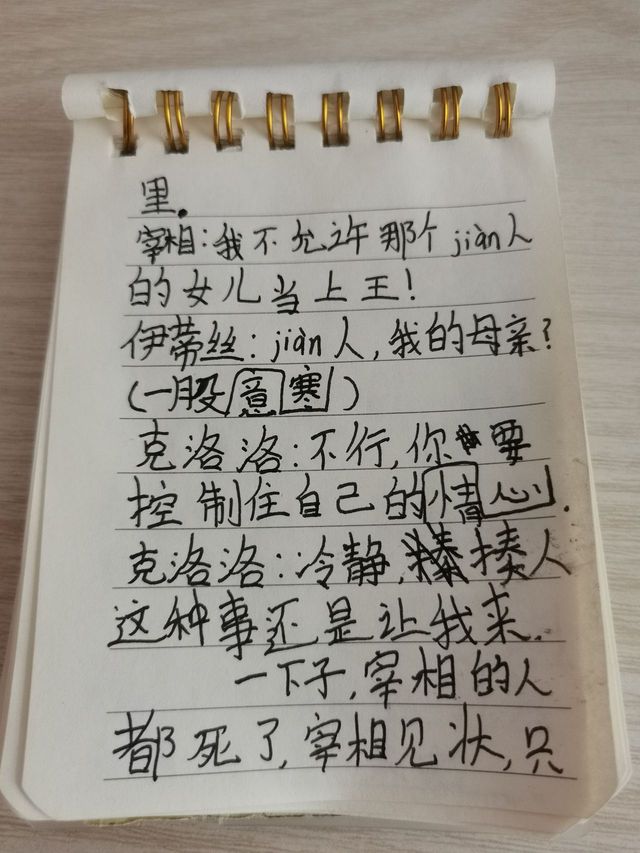 里。
宰相：我不允许那个jiàn人
的女儿当上王！
伊蒂丝：jiàn人，我的母亲？
（一股意寒）
克洛洛：不行，你要
控制住自己的情心。
克洛洛：冷静，揍人
这种事还是让我来.
一下子，宰相的人
都死了，宰相见状，只